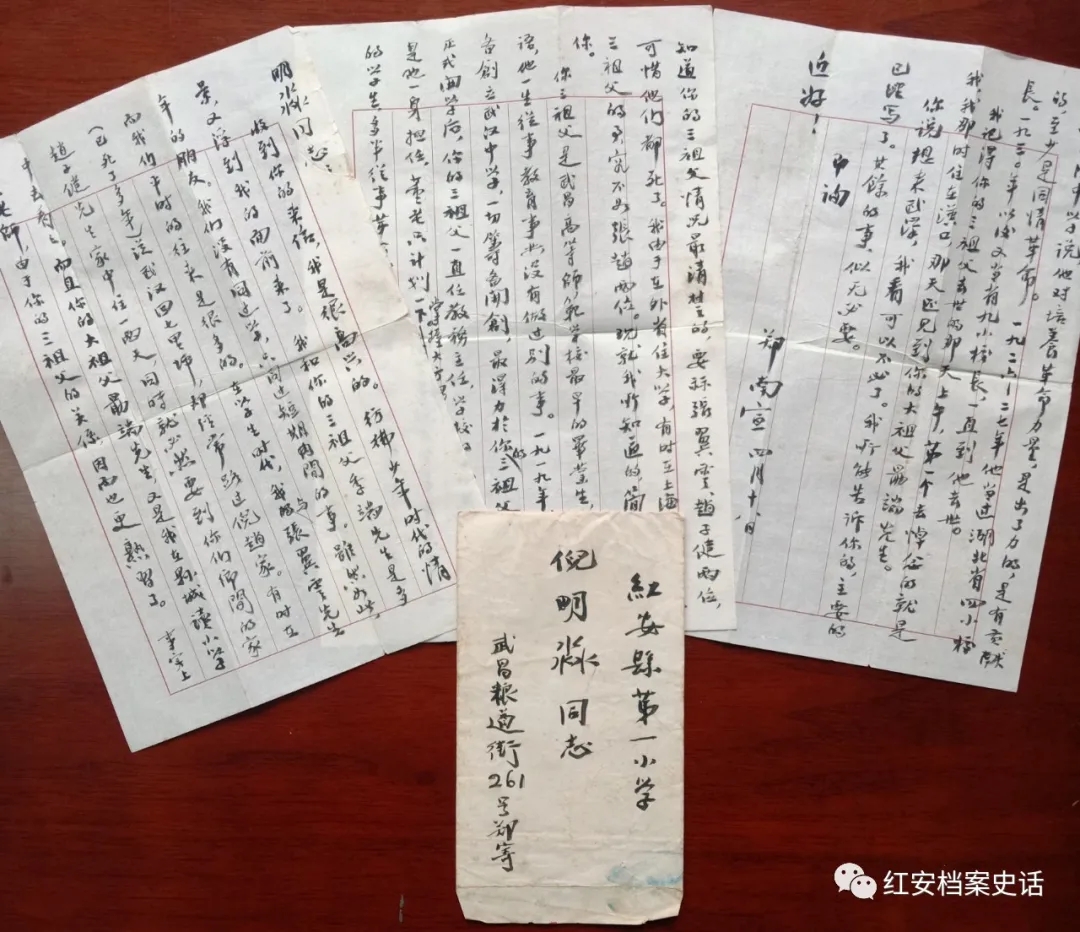 明淼同志：
收到你的来信，我是很高兴的。彷彿少年时代的情
景，又浮到我的面前来了。我和你的三祖父季端先生是多
年的朋友。我们没有同过学，只同过短期间的事。虽然如此，
而我们中时的往来是很多的。在学生时代，我与張翼雲先生
（已死了多年）從武汉回七里坪，却经常路过倪趙家。有时在
趙子健先生家中住一两天，同时就必然要到你们仰閣的家
中去看看。而且你的大祖父最端先生，又是我在县城读小学
老师，由于你的三祖父的关係，因而也更熟習了。事实上
知道你的三祖父情况最清楚的，要算張翼雲、趙子健两位，
可惜他们都死了。我由于在外省住大学，有时在上海
三祖父的事究不如張趙两位。现就我所知道的简
你。
你三祖父是武昌高等師范学校最早的畢業生，
语，他一生從事教育事业没有做过别的事。一九一九年
备創立武汉中学，一切籌备開創，最得力於你的三祖父
正式開学后，你的三祖父一直任教務主任，学校
是他一身担任，董老只计划一下
的学生多半從事革
的，至少是同情革命。
中学说他对培养革命力量，是出了力的，是有贡献
我记得你的三祖父一九二六—二七年他当过湖北省四小校
長。一九三〇年以後又当省九小校長，一直到他去世。
我，我那时住在漢口，那天还见到你的大祖父最端先生。
你三祖父去世的那天上午，第一个去悼唁的就是
你说想来武漢，我看可以不必了。我所能告诉你的，主要的
已经写了。其餘的事，似无必要。
此詢
近好！
郑南宣 四月十八日
紅安縣第一小学
倪明淼同志
武昌粮道街261号郑寄
红安档案史话